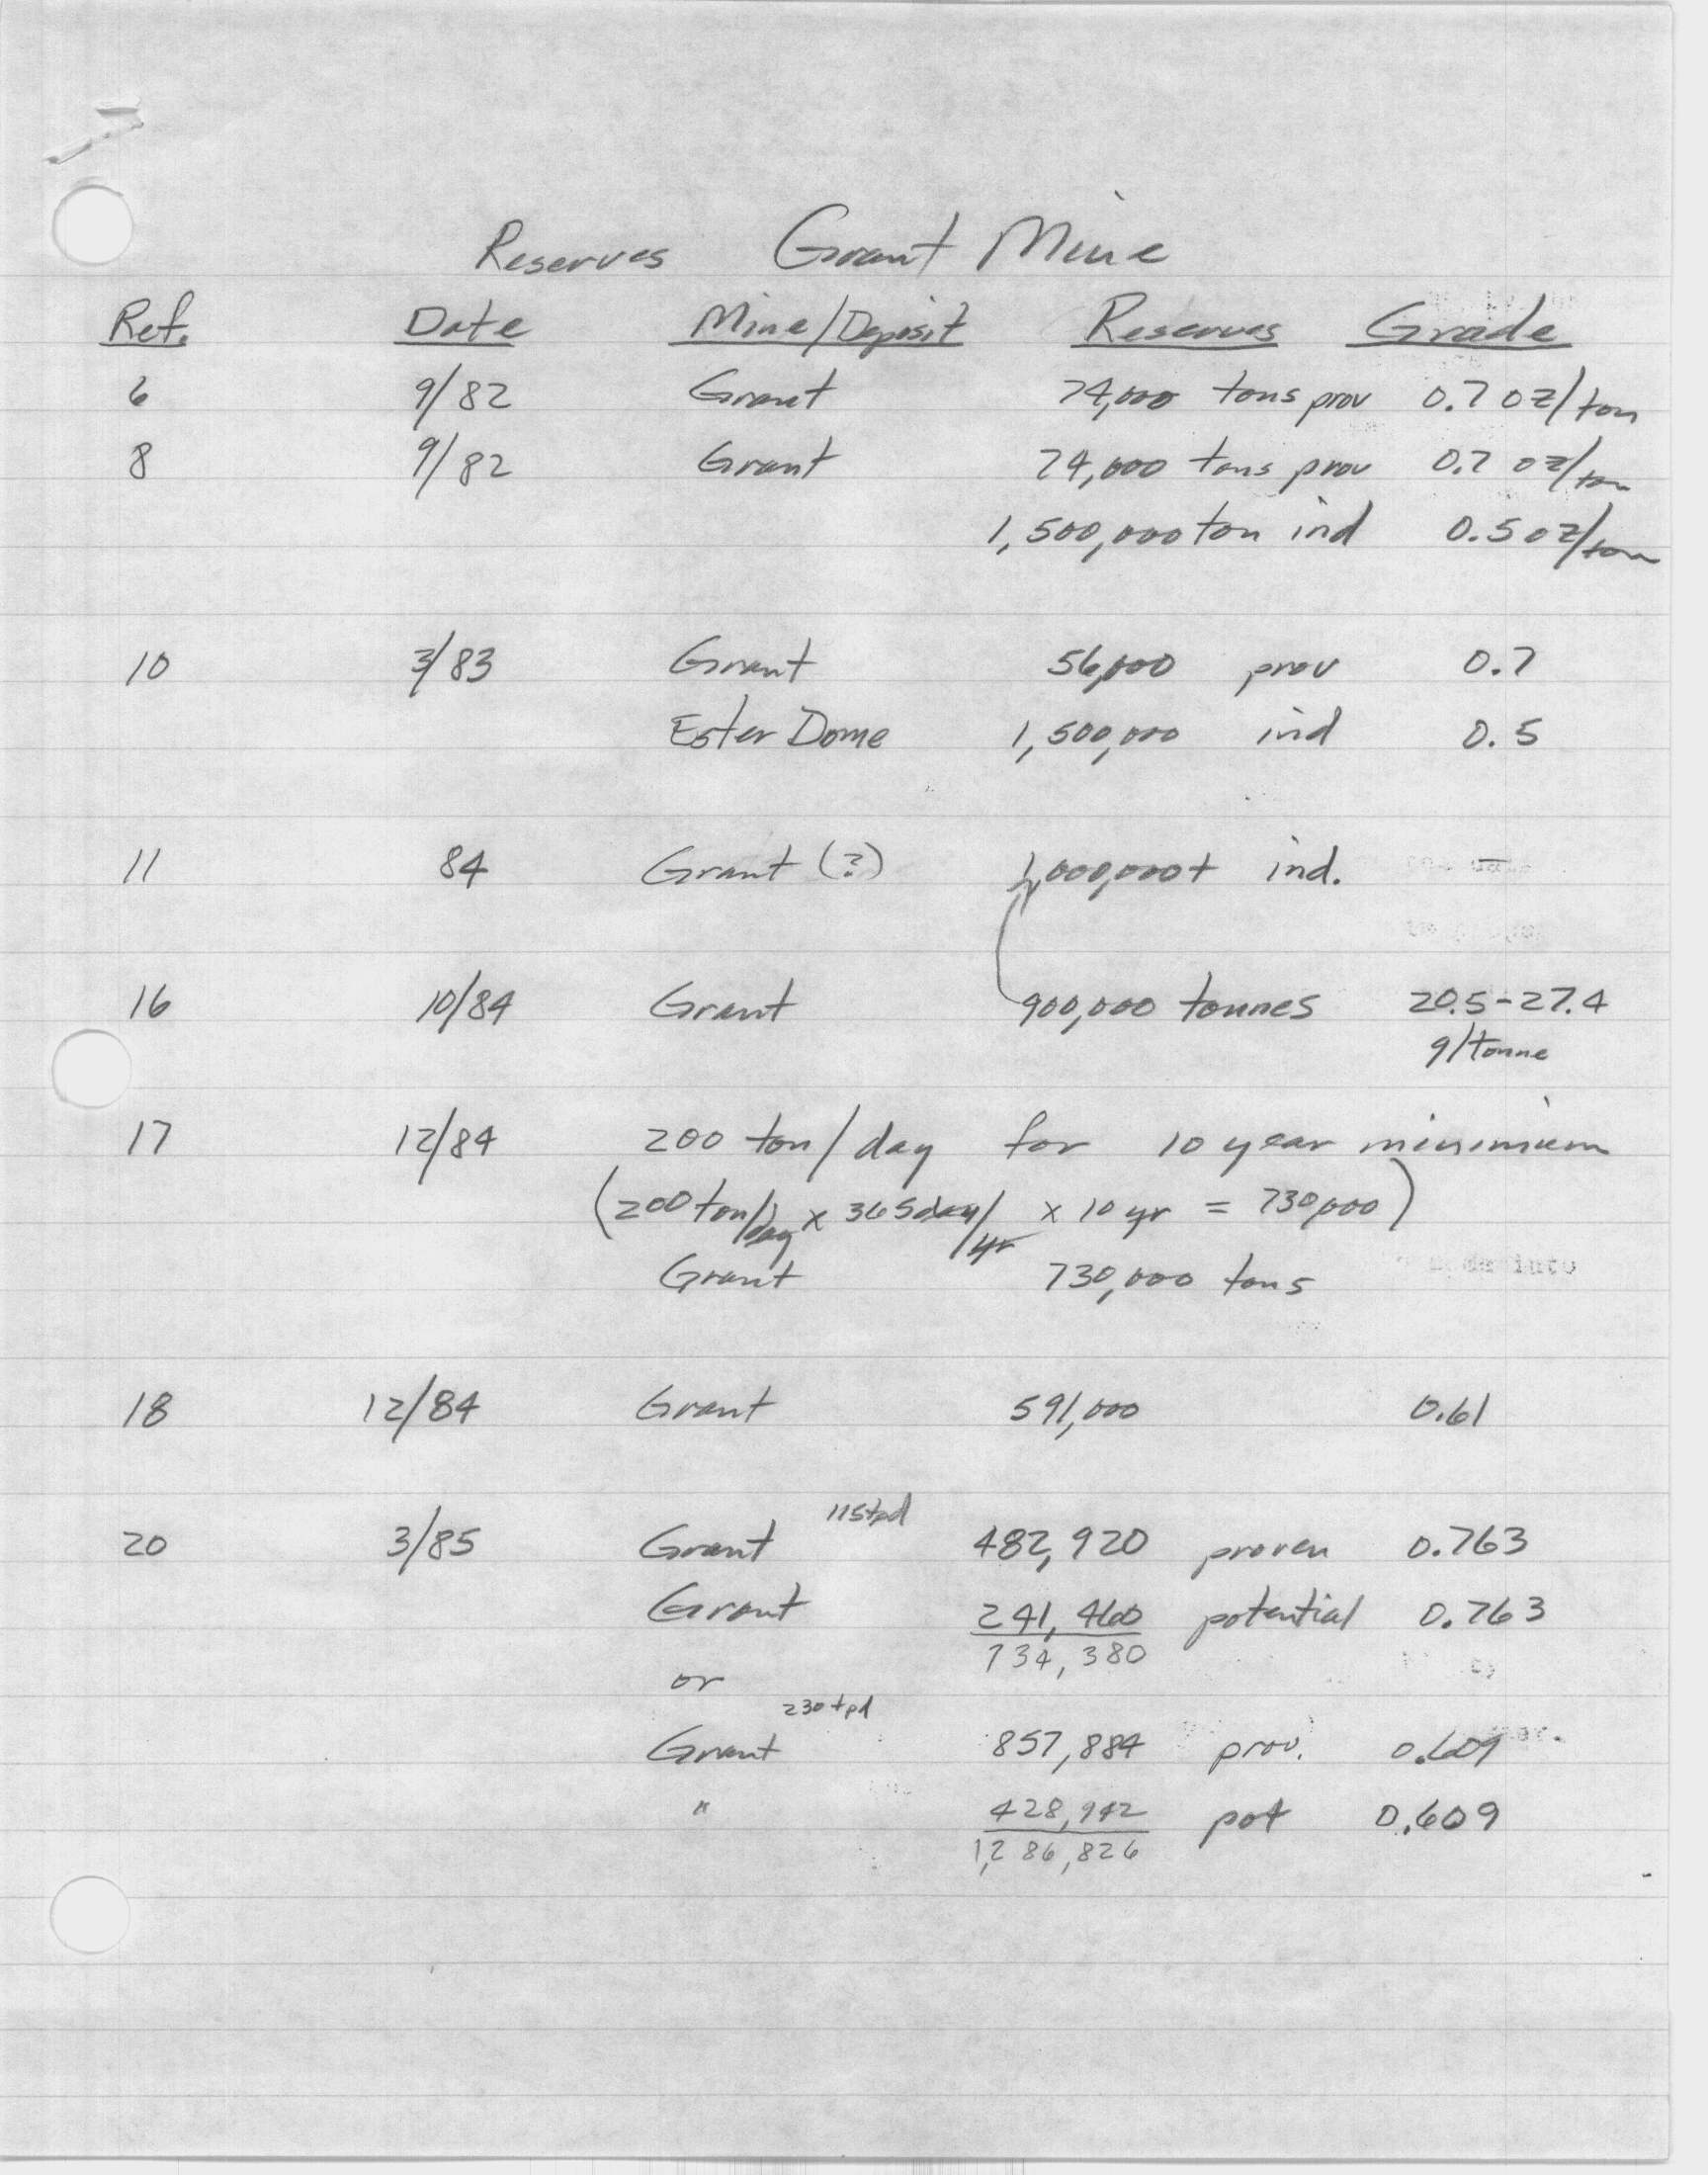 Reserves Grant Mine
Ref. Date Mine/Deposit Reserves Grade
6 9/82 Grant 74,000 tons prov 0.7 oz/ton
8 9/82 Grant 74,000 tons prov 0.7 oz/ton
1,500,000 ton ind 0.5 oz/ton
10 3/83 Grant 56,000 prov 0.7
Ester Dome 1,500,000 ind 0.5
11 84 Grant (?) 1,000,000+ ind. —
16 10/84 Grant 900,000 tonnes 20.5-27.4
g/tonne
17 12/84 200 ton/day for 10 year minimium
(200 ton/day x 365 day/yr x 10 yr = 730,000)
Grant 730,000 tons
18 12/84 Grant 591,000 0.61
115tpd
20 3/85 Grant 482,920 proven 0.763
Grant 241,460 potential 0.763
734,380
or
230tpd
Grant 857,884 prov. 0.609
" 428,942 pot 0.609
1,286,826